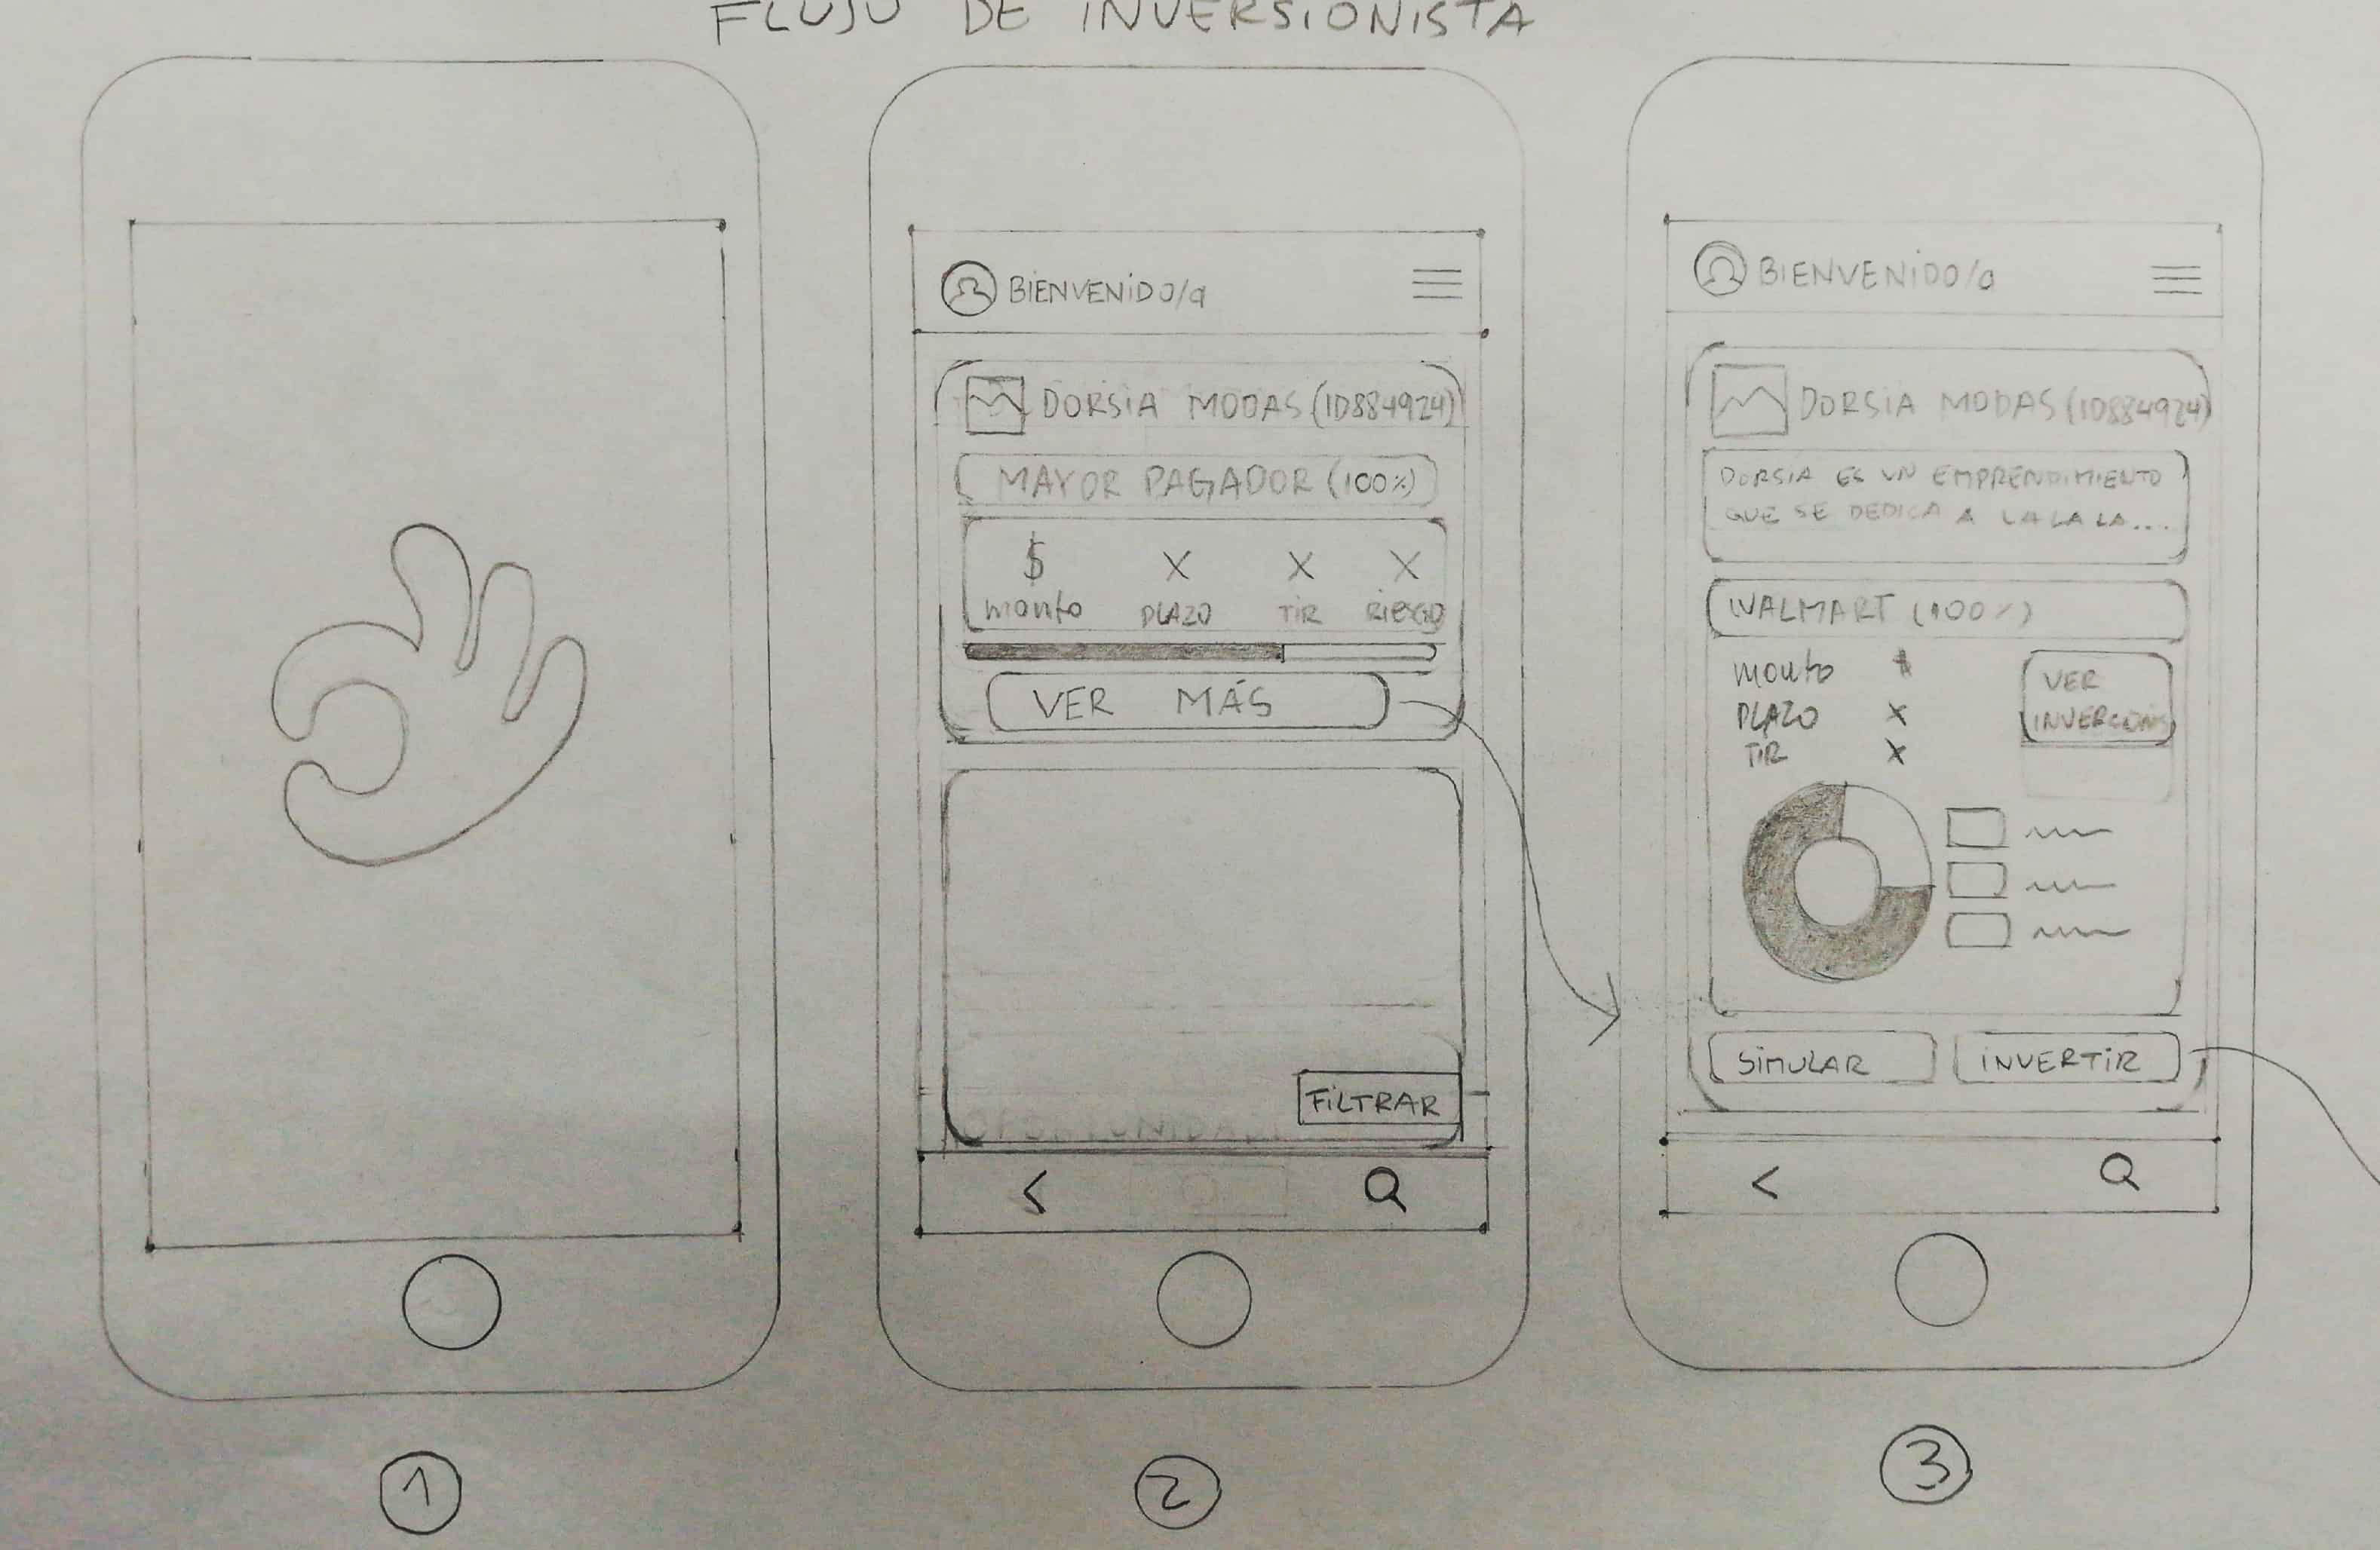 FLUJO DE INVERSIONISTA
BIENVENIDO/a
DORSIA MODAS (ID884924)
MAYOR PAGADOR (100%)
$ X X X
monto PLAZO TIR RIESGO
VER MÁS
FILTRAR
OPORTUNIDAD
<
2
BIENVENIDO/a
DORSIA MODAS (ID884924)
DORSIA ES UN EMPRENDIMIENTO
QUE SE DEDICA A LA LA LA...
WALMART (100%)
monto $
PLAZO X
TIR X
VER
SIMULAR
INVERTIR
<
3
1